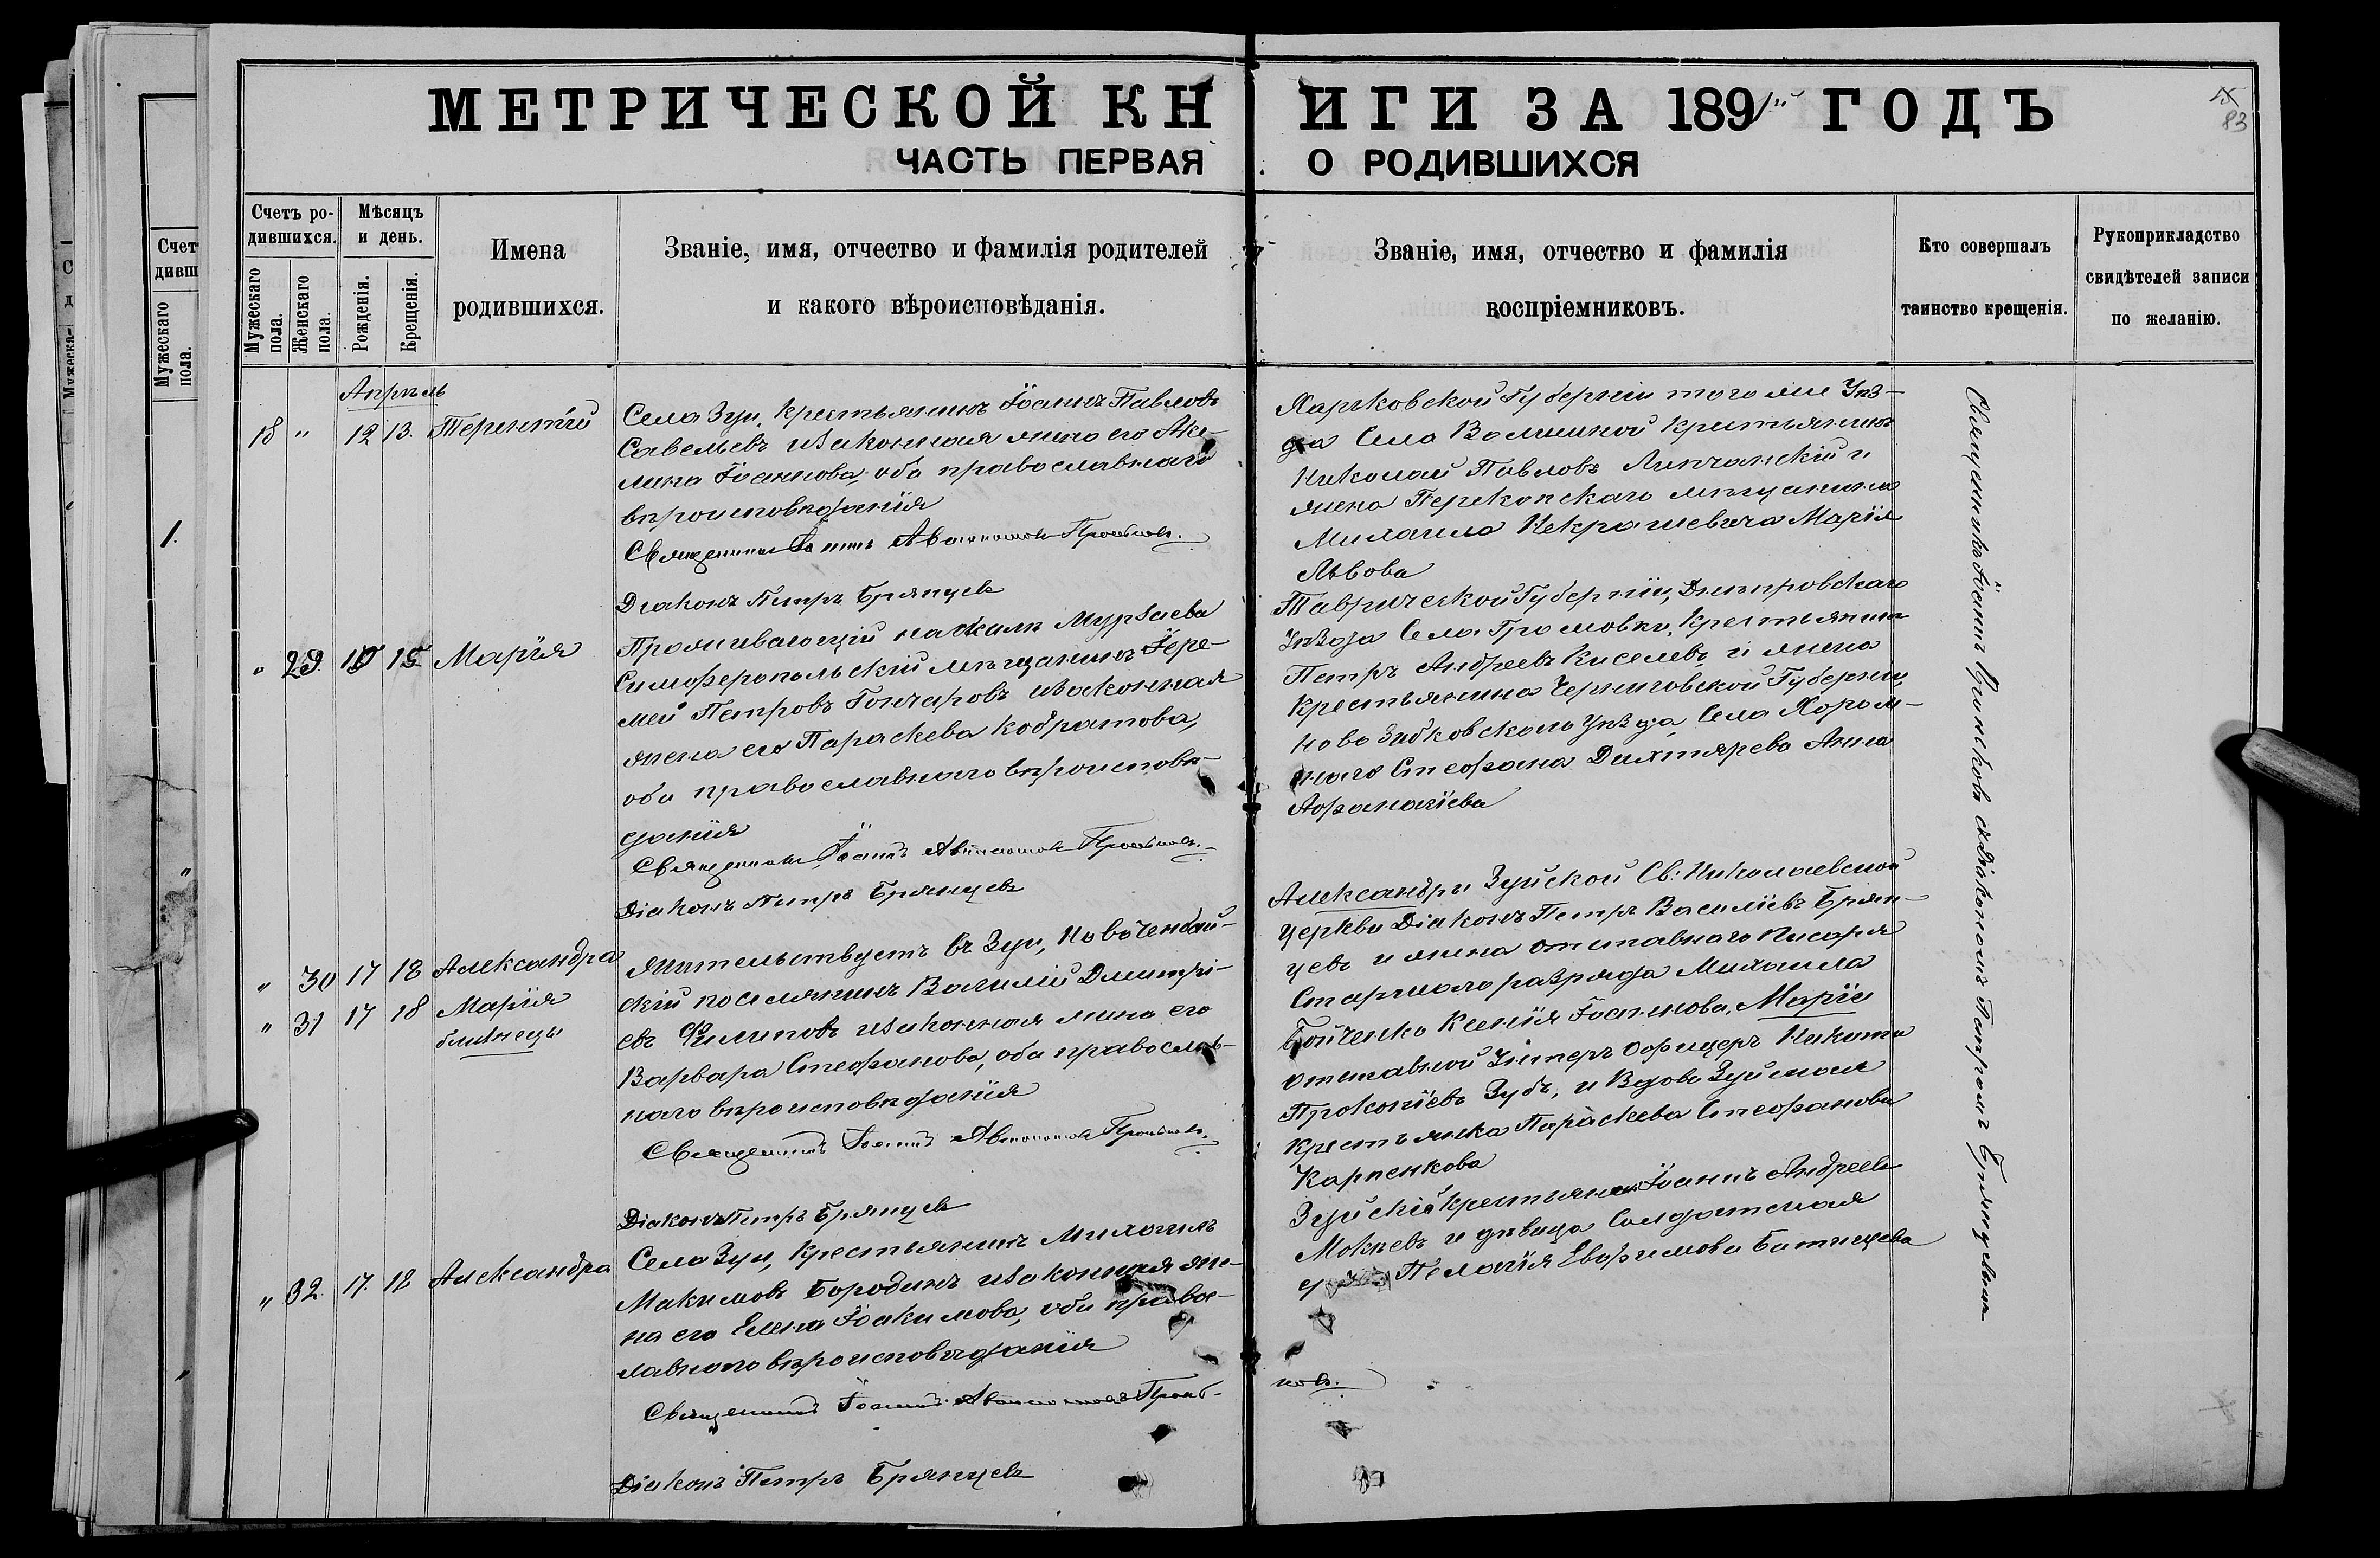 МЕТРИЧЕСКОЙ КНИГИ ЗА 1891й ГОДЪ
83
ЧАСТЬ ПЕРВАЯ О РОДИВШИХСЯ
Счетъ родившихся.
Мужескаго пола.
Женскаго пола.
Мѣсяцъ и день.
Рожденія.
Крещенія.
Имена
родившихся.
Званіе, имя, отчество и фамилія родителей
и какого вѣроисповѣданія.
Званіе, имя, отчество и фамилія
воспріемниковъ.
Кто совершалъ
таинство крещенія.
Рукоприкладство
свидѣтелей записи
по желанію.
Счет
дивш
Мужескаго
пола.
1.
Апрѣль
18 " 12 13. Терентій
Села Зуи, крестьянинъ Іоаннъ Павловъ
Савельевъ и законная жена его Аки-
лина Іоаннова, оба православнаго
вѣроисповѣданія
Священникъ Іоаннъ
Діаконъ Петръ Брянцевъ
Харьковской Губерніи того же Уѣз-
да Села крестьянинъ
Николай Павловъ Липчанскій и
жена Перекопскаго мѣщанина
Михаила Некрашевича Марія
Львова
" 29. 10 15 Марія
Проживающій на Мурзаева
Симферопольскій мѣщанинъ Іере-
мей Петровъ Гончаровъ и законная
жена его Параскева Кодратова,
оба православнаго вѣроисповѣ-
данія
Священникъ Іоаннъ
Діаконъ Петръ Брянцевъ
Таврической Губерніи, Днѣпровскаго
Уѣзда Села Громовки, Крестьянинъ
Петръ Андреевъ Киселевъ и жена
Крестьянина Черниговской Губерніи,
Новозыбковскаго Уѣзда, Села Хором-
наго Стефана Дихтярева Анна
Афанасіева
" 30 17 18 Александра
" 31 17 18 Марія
близнецы
Жительствуетъ въ Зуи,
скій поселянинъ Василій Дмитрі-
евъ Филиповъ и законная жена его
Варвара Стефанова, оба православ-
наго вѣроисповѣданія
Священникъ Іоаннъ
Діаконъ Петръ Брянцевъ
Александри Зуйской Св. Николаевской
церкви Діаконъ Петръ Василіевъ Брян-
цевъ и жена отставнаго писаря
Старшаго разряда Михаила
Бойченко Ксенія Іоаннова, Маріи
отставной Унтеръ Офицеръ Никита
Прокопіевъ Зубъ, и Вдова Зуйская
крестьянка Параскева Стефанова
Карпенкова
" 32. 17. 18 Александра
Села Зуи, Крестьянинъ Михаилъ
Макимовъ Бородинъ и законная же-
на его Елена Іоакимова, оба правос-
лавнаго вѣроисповѣданія
Священникъ Іоаннъ
Діаконъ Петръ Брянцевъ
Зуйскій крестьянинъ Іоаннъ Андреевъ
Мокѣевъ и дѣвица Солдатская
Пелагія Евфимова Батищева
новъ.
Священникъ Іоаннъ съ Діакономъ Петромъ Брянцевымъ